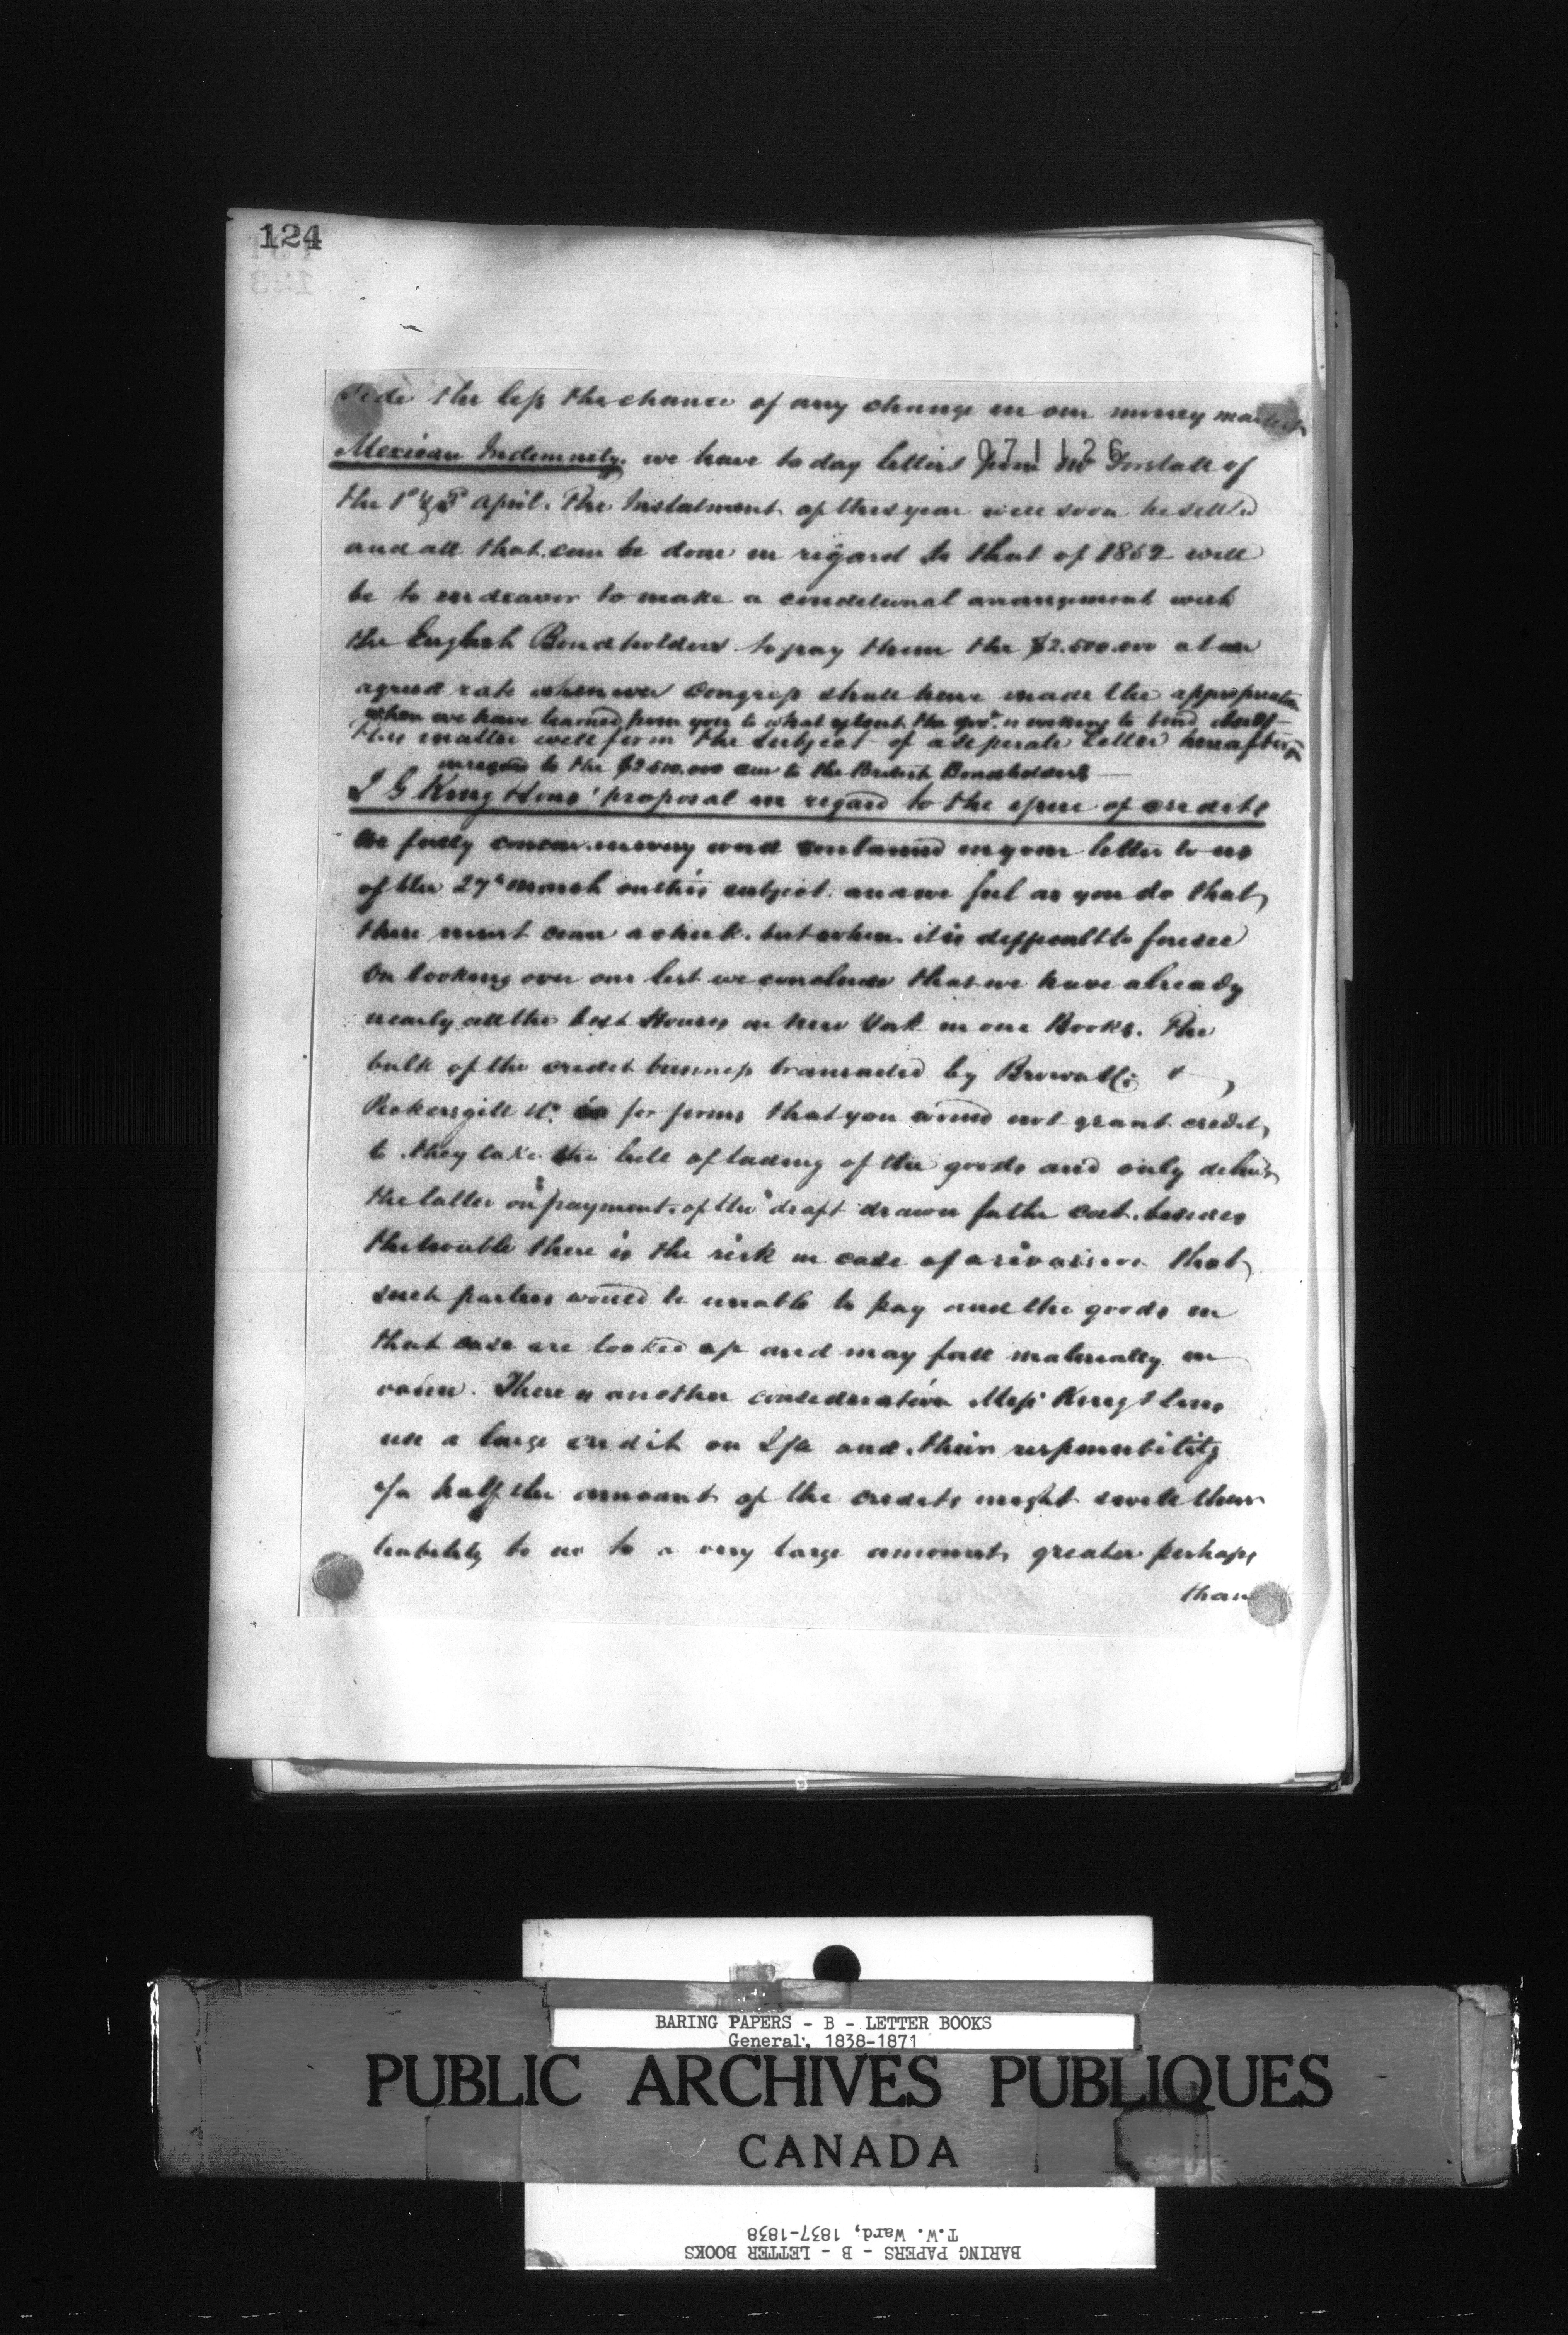 124
side the less the chance of any change in our money market
071126
Mexican Indemnity. we have to day letters from Mr Forstall of
the 1st & 5th April. The Instalment of this year will soon be settled
and all that can be done in regard to that of 1852 will
be to endeavor to make a conditional arrangement with
the English Bondholders to pay them the $2.500.000 at an
agreed rate whenever Congress shall have made the appropriation
when we have learned from you to what extent the Govt. is willing to bind itself
this matter will form the subject of a seperate Letter hereafter
in regard to the $2.500.000 due to the British Bondholders
J G King Sons' proposal in regard to the issue of credits
We fully concur in every word contained in your letter to us
of the 27th March on this subject. and we feel as you do that
there must come a check. but when. it is difficult to foresee
On looking over our list we conclude that we have already
nearly all the best Houses in New York in our Books. The
bulk of the credit business transacted by Brown & Co &
Pickersgill & Co. is for firms that you would not grant credit
to. they take the bill of lading of the goods and only deliver
the latter on payment of the draft drawn for the cost. besides
the trouble there is the risk in case of a revulsion that
such parties would be unable to pay and the goods in
that case are locked up and may fall materially in
value. There is another consideration Messrs King & Sons
use a large credit on and their responsibility
for half the amount of the credits might swell their
liability to us to a very large amount, greater perhaps
than
BARING PAPERS - B - LETTER BOOKS
General, 1838-1871
PUBLIC ARCHIVES PUBLIQUES
CANADA
T.W. Ward, 1837-1838
BARING PAPERS - B - LETTER BOOKS